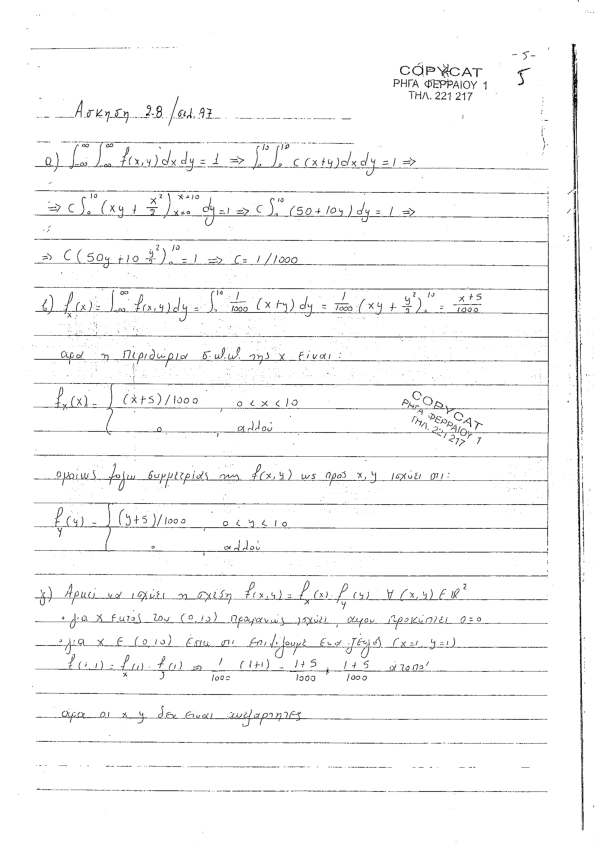 - 5 -
5
COPYCAT
ΡΗΓΑ ΦΕΡΡΑΙΟΥ 1
ΤΗΛ. 221 217
Ασκηση 2.8 / σελ. 97
α) ∫_{-∞}^{∞} ∫_{-∞}^{∞} f(x,y) dx dy = 1 ⇒ ∫_0^{10} ∫_0^{10} c(x+y) dx dy = 1 ⇒
⇒ C ∫_0^{10} (xy + x²/2)_{x=0}^{x=10} dy = 1 ⇒ C ∫_0^{10} (50 + 10y) dy = 1 ⇒
⇒ C (50y + 10 y²/2)_0^{10} = 1 ⇒ C = 1/1000
β) f_x(x) = ∫_{-∞}^{∞} f(x,y) dy = ∫_0^{10} 1/1000 (x+y) dy = 1/1000 (xy + y²/2)_0^{10} = x+5/1000
αρα η περιθώρια σ.π.π. της x είναι:
f_x(x) = { (x+5)/1000 , 0 < x < 10
0 , αλλού
COPYCAT
ΡΗΓΑ ΦΕΡΡΑΙΟΥ 1
ΤΗΛ. 221 217
ομοίως λογω συμμετρίας της f(x,y) ως προς x, y ισχύει οτι:
f_y(y) = { (y+5)/1000 , 0 < y < 10
0 , αλλού
γ) Αρκεί να ισχύει η σχέση f(x,y) = f_x(x) · f_y(y) ∀ (x,y) ∈ ℝ²
• για x εκτός του (0,10) προφανώς ισχύει, αφου προκύπτει 0=0
• για x ∈ (0,10) εστω οτι επιλέγουμε ενα ζεύγος (x=1, y=1)
f(1,1) = f_x(1) · f_y(1) ⇒ 1/1000 (1+1) = 1+5/1000 · 1+5/1000 ατοπο!
αρα οι x y δεν ειναι ανεξαρτητες